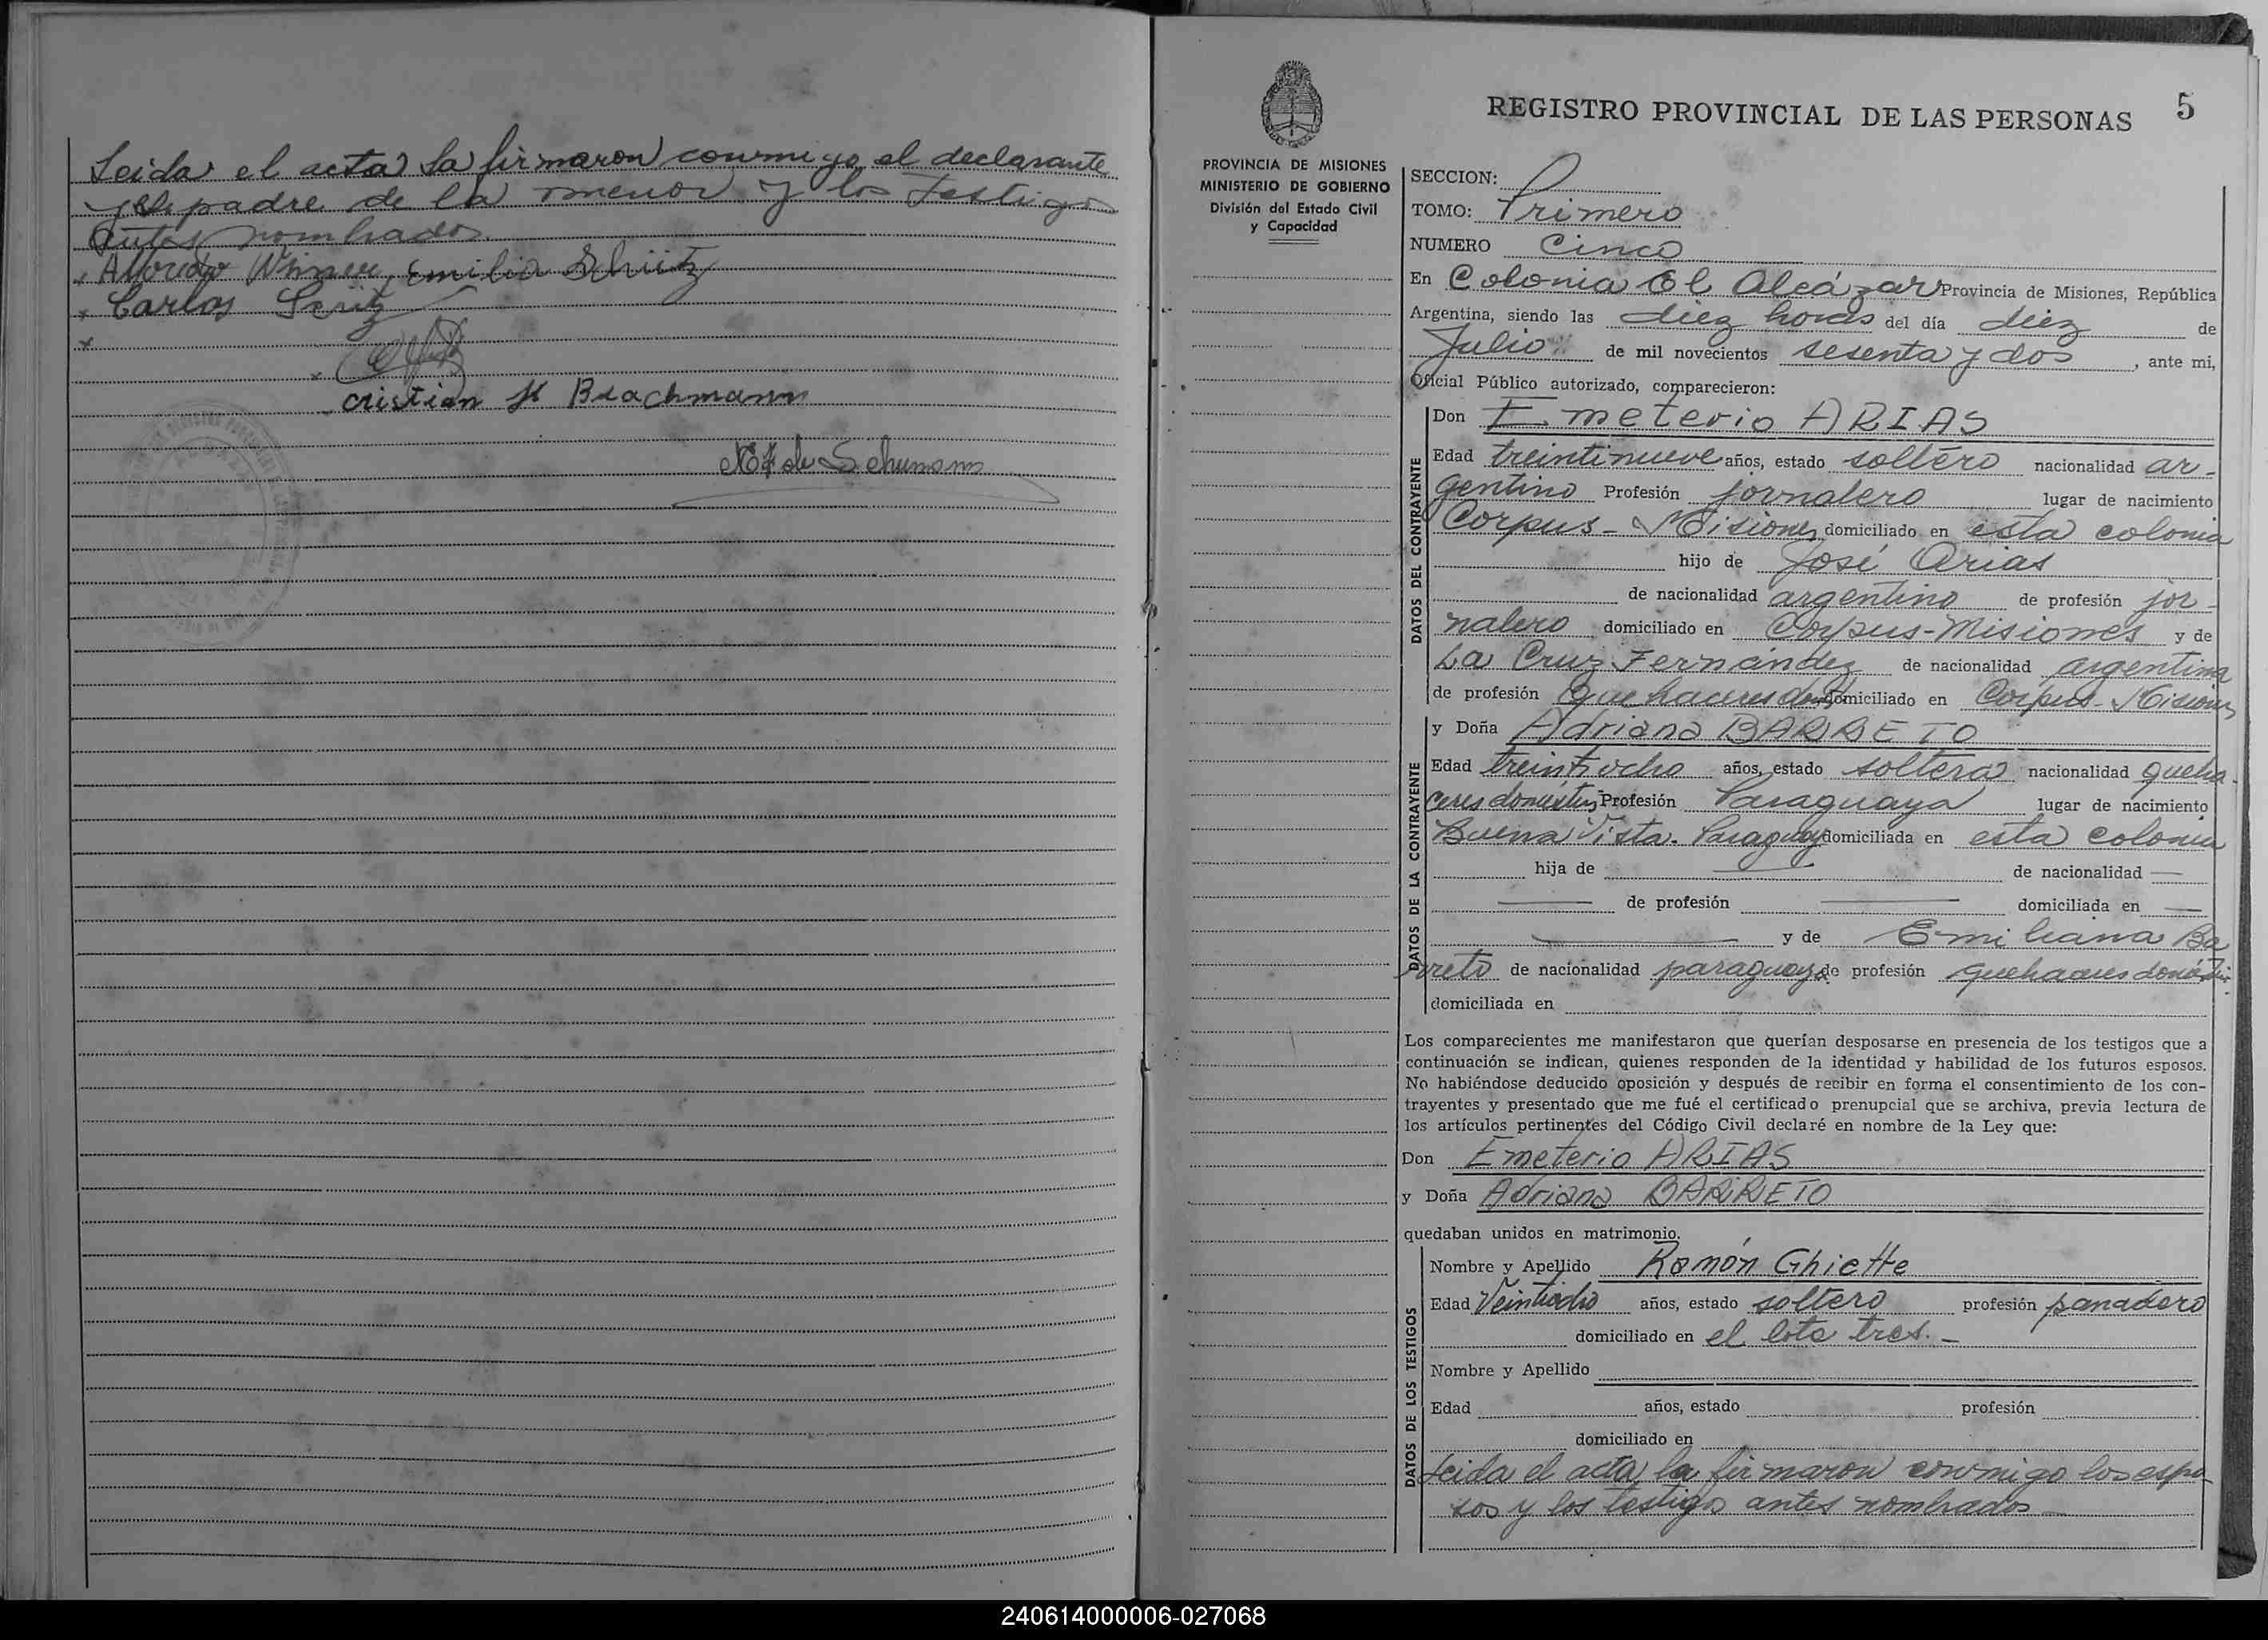 Leida el acta la firmaron conmigo el declarante
y el padre de la menor y los testigos
antes nombrados.
Emilia Schütz
Carlos
cristian H Brachmann
de Schumann
5
REGISTRO PROVINCIAL DE LAS PERSONAS
PROVINCIA DE MISIONES
MINISTERIO DE GOBIERNO
División del Estado Civil
y Capacidad
SECCION:
TOMO: Primero
NUMERO Cinco
En Colonia El Alcázar Provincia de Misiones, República
Argentina, siendo las diez horas del día diez de
Julio de mil novecientos sesenta y dos, ante mi,
Oficial Público autorizado, comparecieron:
DATOS DEL CONTRAYENTE
Don Emeterio ARIAS
Edad treintinueve años, estado soltero nacionalidad ar-
gentino Profesión jornalero lugar de nacimiento
Corpus - Misiones domiciliado en esta colonia
hijo de José Arias
de nacionalidad argentino de profesión jor-
nalero domiciliado en Corpus-Misiones y de
La Cruz Fernández de nacionalidad argentina
de profesión Quehaceres dom domiciliado en Corpus - Misiones
DATOS DE LA CONTRAYENTE
y Doña Adriana BARRETO
Edad treintiocho años, estado soltera nacionalidad queha-
ceres domésticos Profesión Paraguaya lugar de nacimiento
Buena Vista. Paraguay domiciliada en esta colonia
hija de — de nacionalidad —
— de profesión — domiciliada en —
— y de Emiliana Ba
rreto de nacionalidad paraguaya de profesión quehaceres domésticos
domiciliada en
Los comparecientes me manifestaron que querían desposarse en presencia de los testigos que a
continuación se indican, quienes responden de la identidad y habilidad de los futuros esposos.
No habiéndose deducido oposición y después de recibir en forma el consentimiento de los con-
trayentes y presentado que me fué el certificado prenupcial que se archiva, previa lectura de
los artículos pertinentes del Código Civil declaré en nombre de la Ley que:
Don Emeterio ARIAS
y Doña Adriana BARRETO
quedaban unidos en matrimonio.
DATOS DE LOS TESTIGOS
Nombre y Apellido Ramón Ghiette
Edad Veintiocho años, estado soltero profesión panadero
domiciliado en el lote tres. -
Nombre y Apellido
Edad años, estado profesión
domiciliado en
Leida el acta, la firmaron conmigo los espo-
sos y los testigos antes nombrados —
240614000006-027068